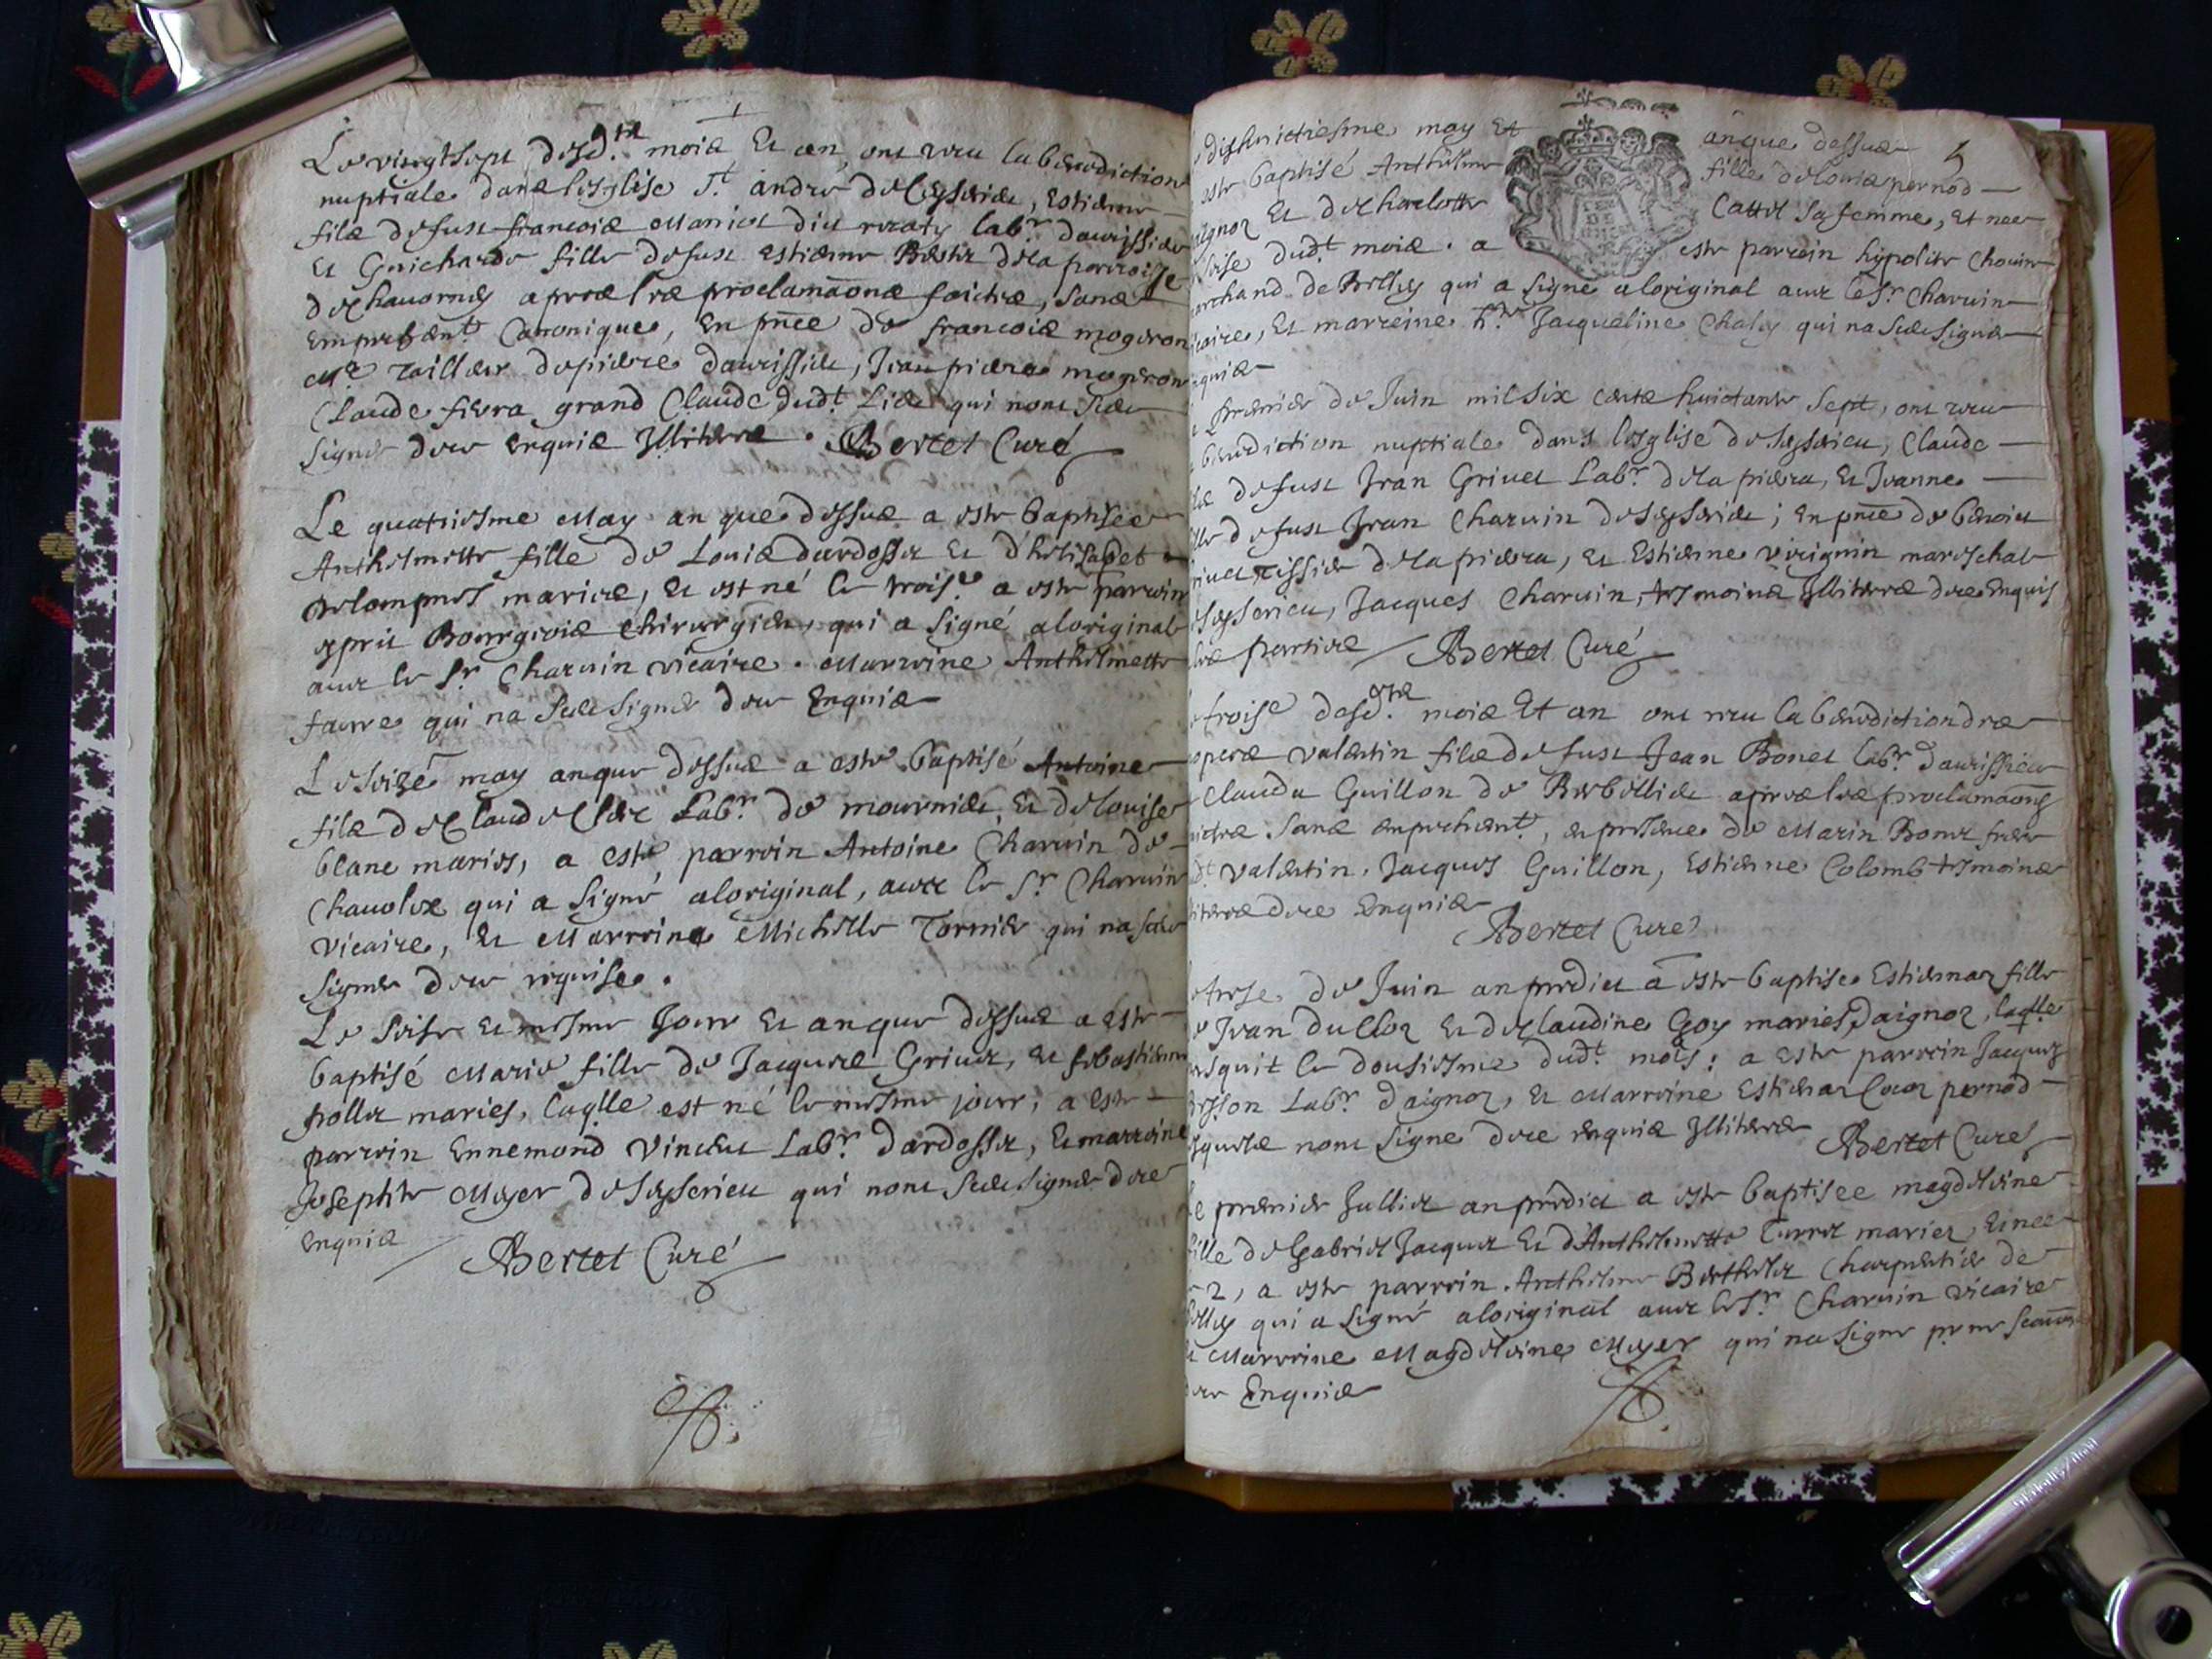 Le vingtsept desd.ts mois Et an, ont receu la benediction
nuptiale dans lesglise St andre de Ceyserieu, Estienne
fils de fust francois Maniet dit recaty lab.r d'aurissieu
Et Guicharde fille de fust Estienne de la parroisse
de chauornay apres les proclamãons faictes, sans
empeschent Canonique, En pnce de francois mogeron
M.e tailleur de pierre daurissieu, Jean pierre mogeron
Claude fierra grand Claude dudt Lieu qui nont sceu
signer de ce enquis Illiteres. Bertet Curé
Le quatriesme May an que dessus a este baptisée
Anthelmette fille de Louis dardosset Et d'helisabet
maries, Et est né le trois.e a este parrein
Bourgeois chirurgien, qui a signé a loriginal
auec le Sr Charuin vicaire. Marreine Anthelmette
faure qui na sceu signer de ce Enquise
Le seize may an que dessus a este baptisé Antoine
fils de Claude Clerc Lab.r de mournieu, Et de louise
blanc maries, a este parrein Antoine Charuin de
chauoley qui a signé a loriginal, auec le Sr Charuin
vicaire, Et Marreine Michelle Tornier qui na sceu
signer de ce requise.
Le seise Et mesme Jour Et an que dessus a este
baptisé Marie fille de Jacques Griuet, Et sebastienne
pollet maries, laqlle est né le mesme jour; a este
parrein Ennemond Vincent Lab.r d'ardosset, Et marreine
Josephte Meyer de Ceyserieu qui nont sceu signer de ce
enquis Bertet Curé
5
dishuictiesme may Et an que dessus
este baptisé Anthelme fille de Louis pernod
aignoz Et de charlotte Cattet sa femme, Et nee
dudt mois. a este parrein hypolite Chouin
archand de Belley qui a signé a loriginal auec le Sr Charuin
icaire, Et marreine Jacqueline Chaley qui na sceu signer
nquise
premier de Juin mil six cents huictante sept, ont receu
benediction nuptiale dans lesglise de Ceyserieu, Claude
ls de fust Jean Griuet Lab.r de la pierra, Et Jeanne
lle de fust Jean Charuin de Ceyserieu; En pnce de benoict
riuet tissier de la pierra, Et Estienne virignin mareschal
eyserieu, Jacques Charuin, tesmoins Illiteres de ce Enquis
les parties Bertet Curé
troise desd.ts mois Et an ont receu la benediction des
opces valentin fils de fust Jean Bonet lab.r d'aurissieu
Claudu Guillon de Berbellieu apres les proclamaons
ictes sans empechent, en presence de Marin Bonet frere
dt valentin, Jacques Guillon, Estienne Colomb tesmoins
literes de ce Enquis
Bertet Curé
de Juin an predict a este baptise Estiennaz fille
e Jean du Cloz Et de Claudine Goy maries d'aignoz, laqlle
asquit le dousiesme dudt mois; a este parrein Jacques
esson Lab.r d'aignoz, Et Marreine Estienaz pernod
esquels nont signe de ce enquis Illiteres Bertet Curé
e premier Julliet an predict a este baptisee magdeleine
fille de Gabriel Jacquet Et d'Anthelmette Turrel maries, Et nee
2, a este parrein Anthelme Berthelet Charpentier de
elley qui a signé a loriginal auec le Sr Charuin vicaire
t Marreine Magdeleine Meyer qui na signe
Enquise